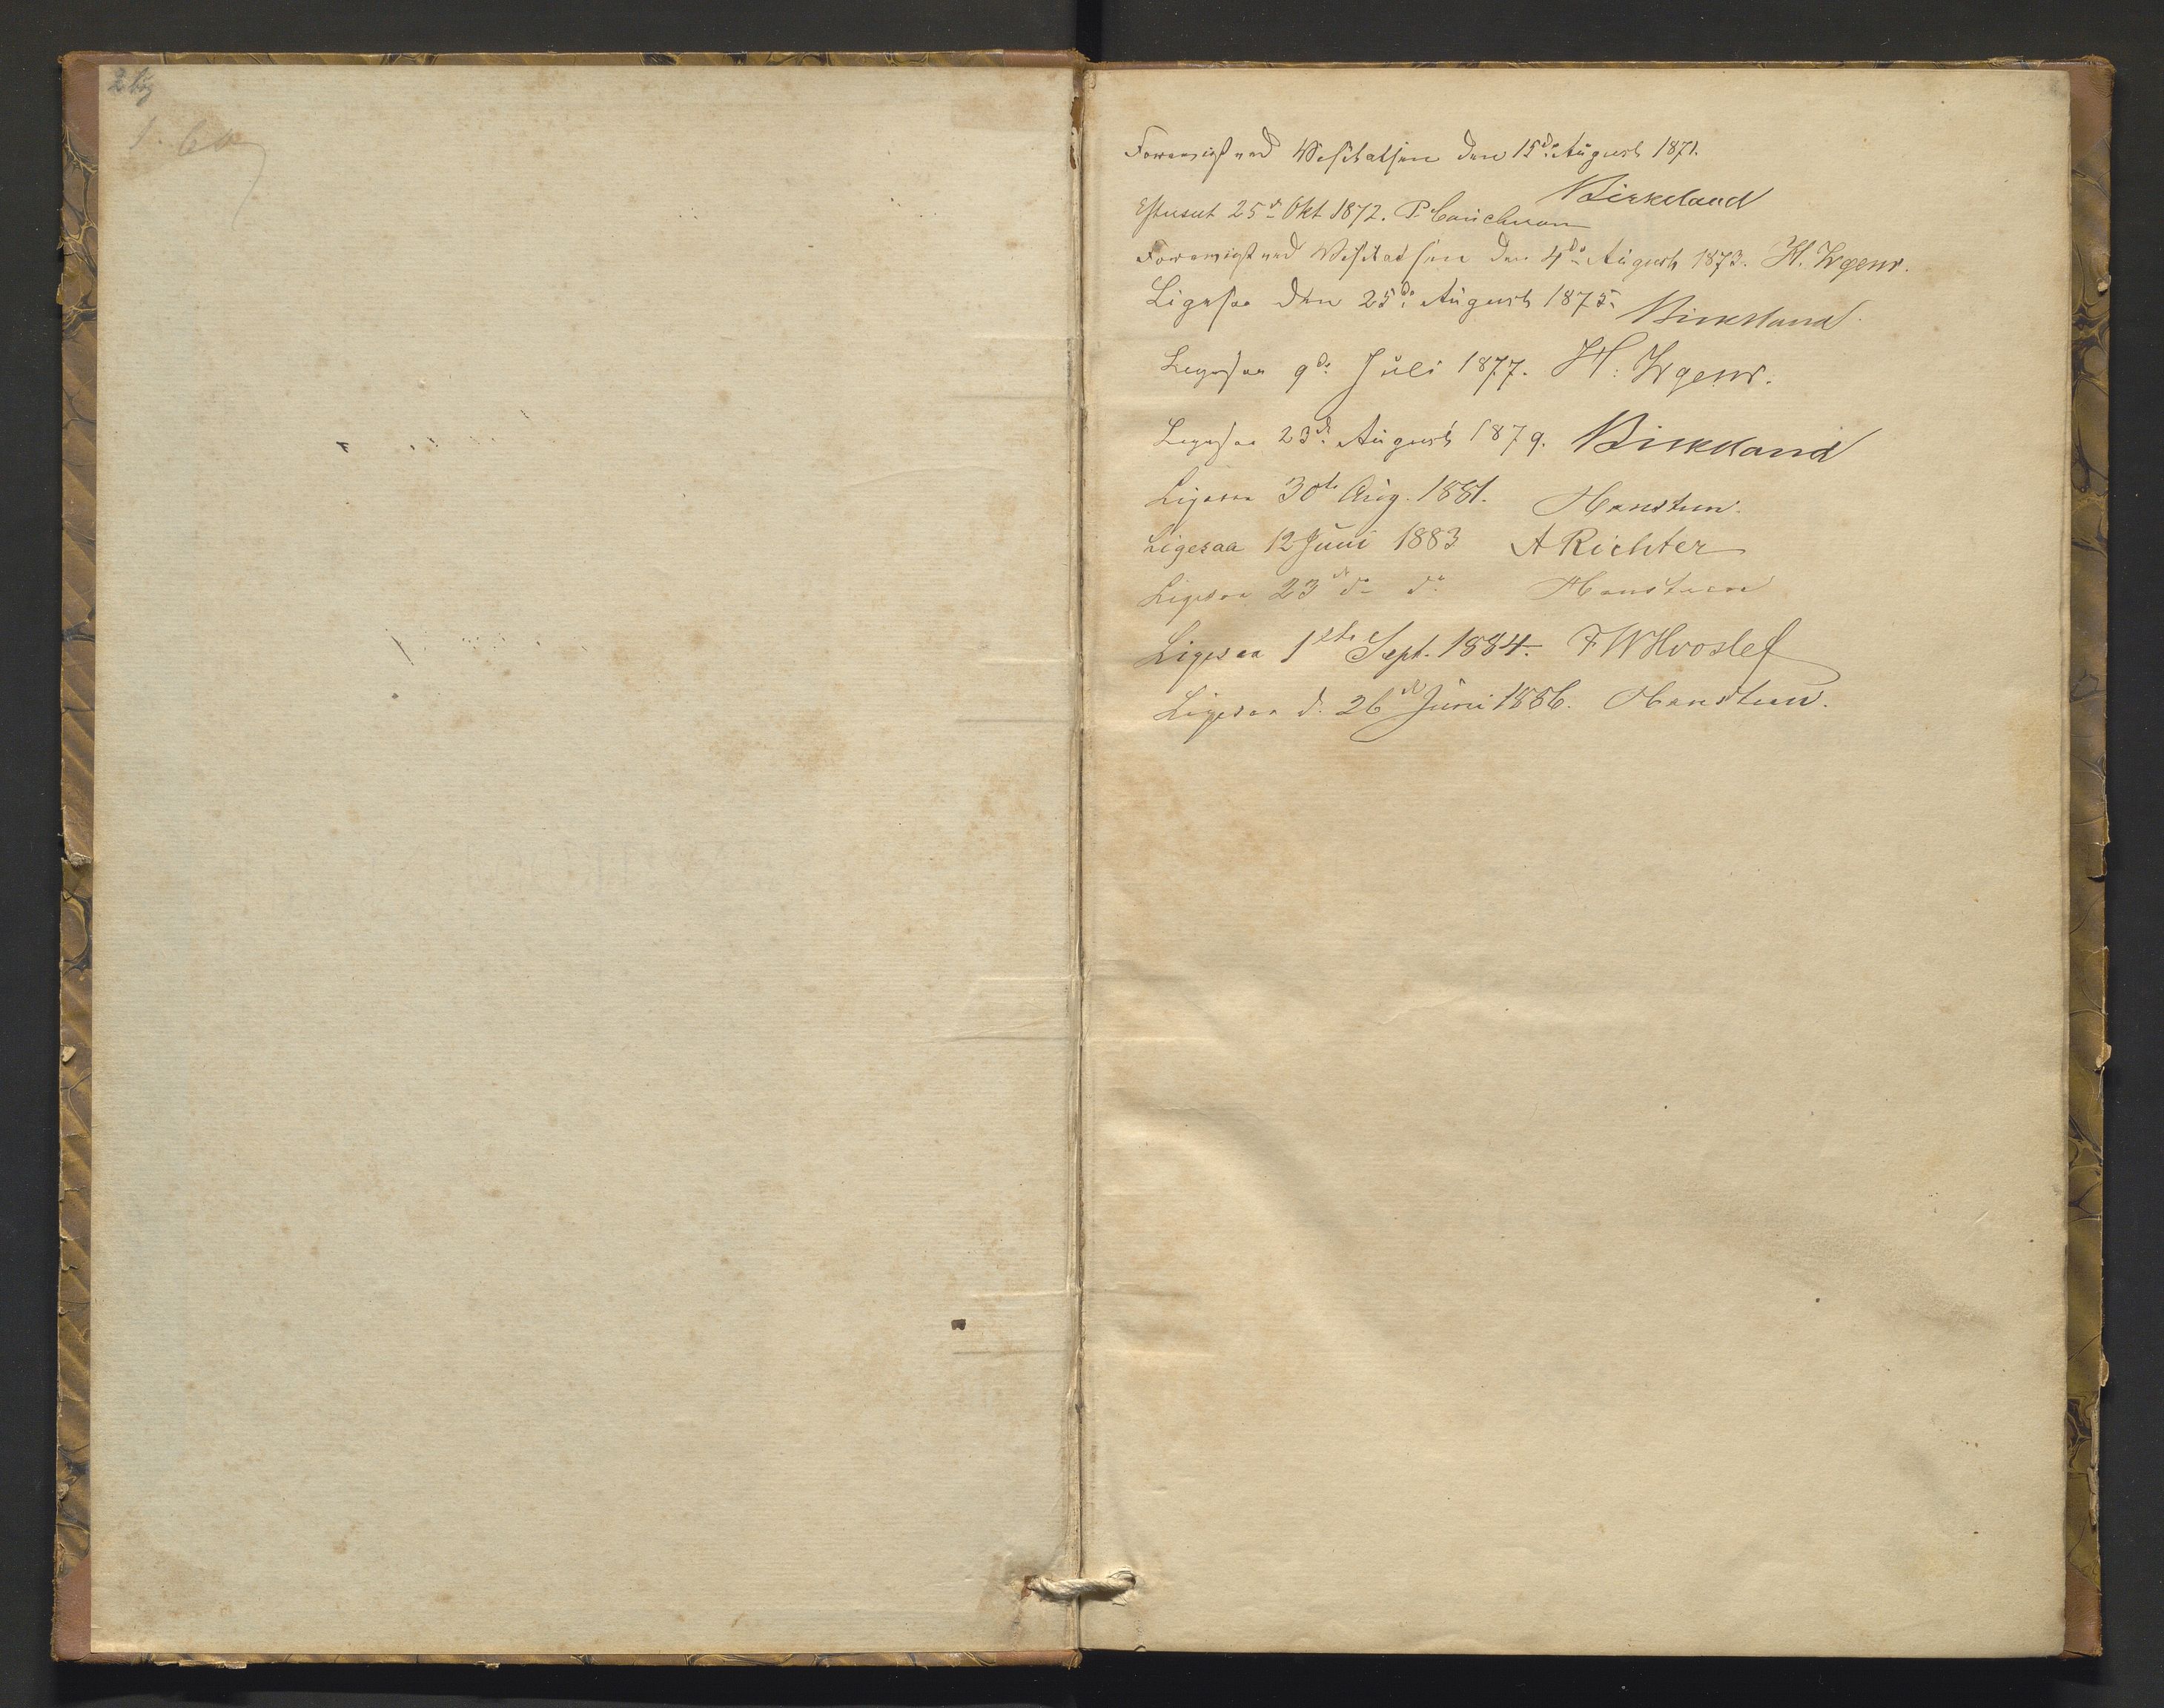 Foreviist ved Visitatsen den 15de August 1871.
Birkeland
Efterseet 25de Okt 1872. P.
Foreviist ved Visitatsen den 4de August 1873. H.
Ligesaa den 25de August 1875. Birkeland
Ligesaa 9de Juli 1877. H.
Ligesaa 23de August 1879. Birkeland
Ligesaa 30te Aug. 1881. Hansteen.
Ligesaa 12 Juni 1883 A Richter
Ligesaa 23de do do Hansteen
Ligesaa 1ste Sept. 1884. F W Hvoslef
Ligesaa d. 26de Juni 1886. Hansteen.